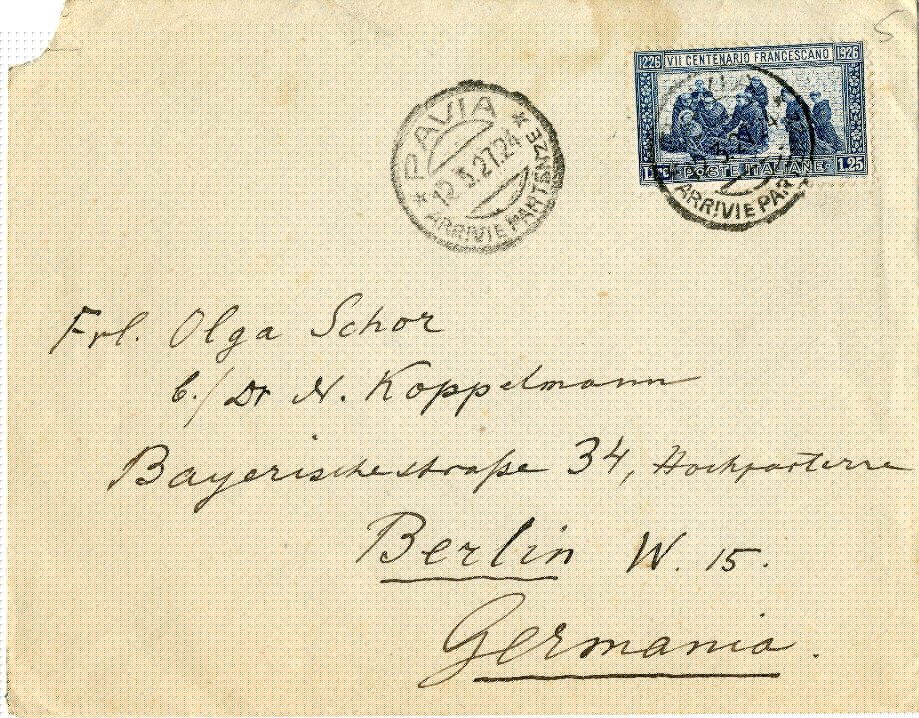 5
1226 VII CENTENARIO FRANCESCANO 1926
1.25 POSTE ITALIANE 1.25
PAVIA
12.3.27.24
* ARRIVI E PARTENZE *
ARRIVI E PAR
Frl. Olga Schor
b./ Dr N. Koppelmann
Bayerischestraße 34, Hochparterre
Berlin W. 15.
Germania.